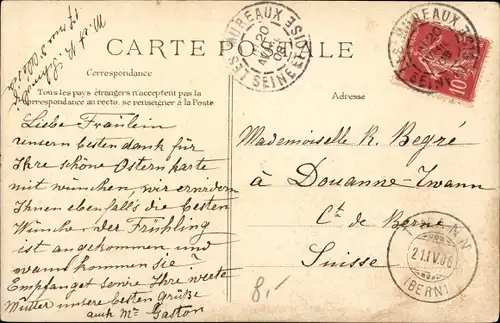 CARTE POSTALE
Correspondance
Tous les pays étrangers n'acceptent pas la
correspondance au recto. se renseigner à la Poste
Adresse
LES MUREAUX
SEINE ET OISE
20
AVRIL
08
LES MUREAUX
10
Liebe Fräulein
unsern besten dank für
Ihre schöne Ostern karte
mit wünchen, wir erwidern
Ihnen ebenfalls die besten
Wünche. der Frühling
ist angekommen und
wann kommen sie?
Empfanget sowie Ihre werte
Mutter unsere besten Grüße
auch Mr Gaston
Mademoiselle R. Begré
à Douanne-Twann
Ct. de Berne
Suisse
TWANN
21.IV.08
(BERN)
8,-